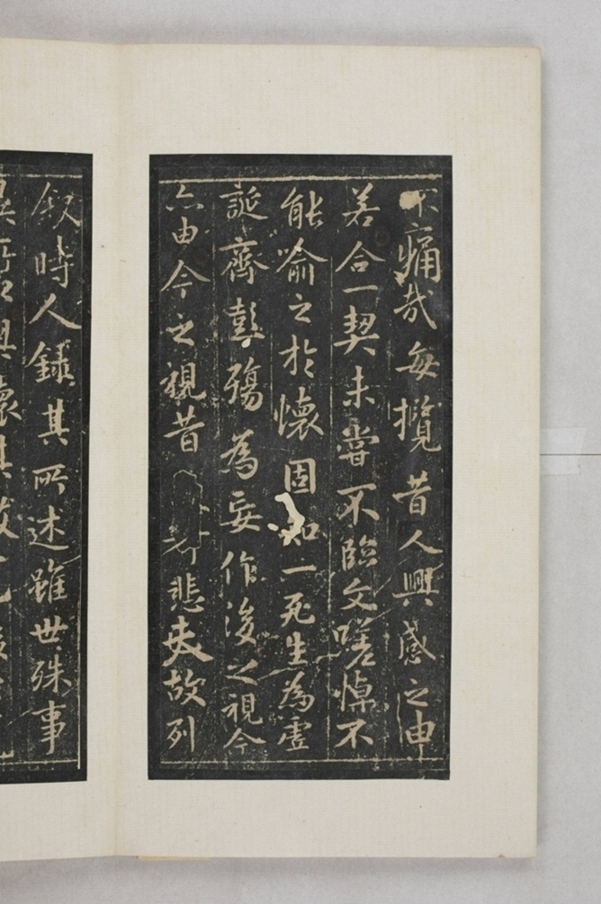 不痛哉每攬昔人興感之由
若合一契未嘗不臨文嗟悼不
能喻之於懷固知一死生為虛
誕齊彭殤為妄作後之視今
亦由今之視昔 悲夫故列
叙時人錄其所述雖世殊事
異所以興懷其致一也